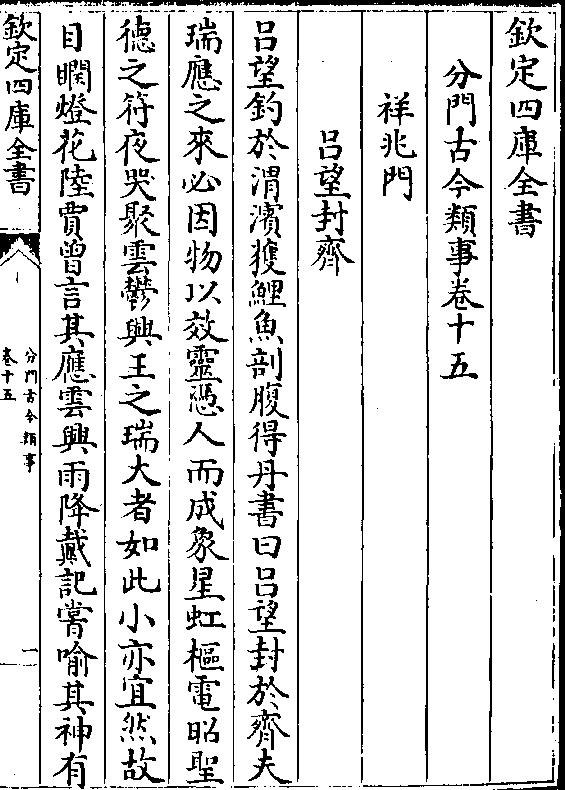 欽定四庫全書
分門古今類事卷十五
祥兆門
呂望封齊
呂望釣於渭濱獲鯉魚剖腹得丹書曰呂望封於齊夫
瑞應之來必因物以效靈憑人而成象星虹樞電昭聖
德之符夜哭聚雲鬱興王之瑞大者如此小亦宜然故
目瞤燈花陸賈曾言其應雲興雨降戴記嘗喻其神有
欽定四庫全書
分門古今類事
卷十五
一